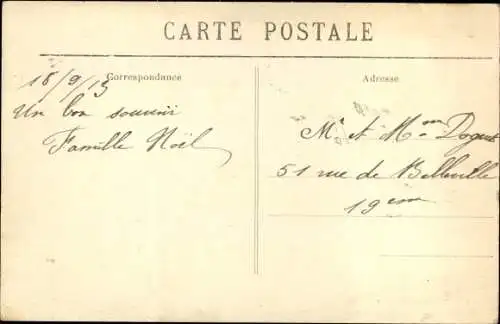 CARTE POSTALE
Correspondance
Adresse
18/9/13
Un bon souvenir
Famille Noël
Mr et Mme
51 rue de Belleville
19eme